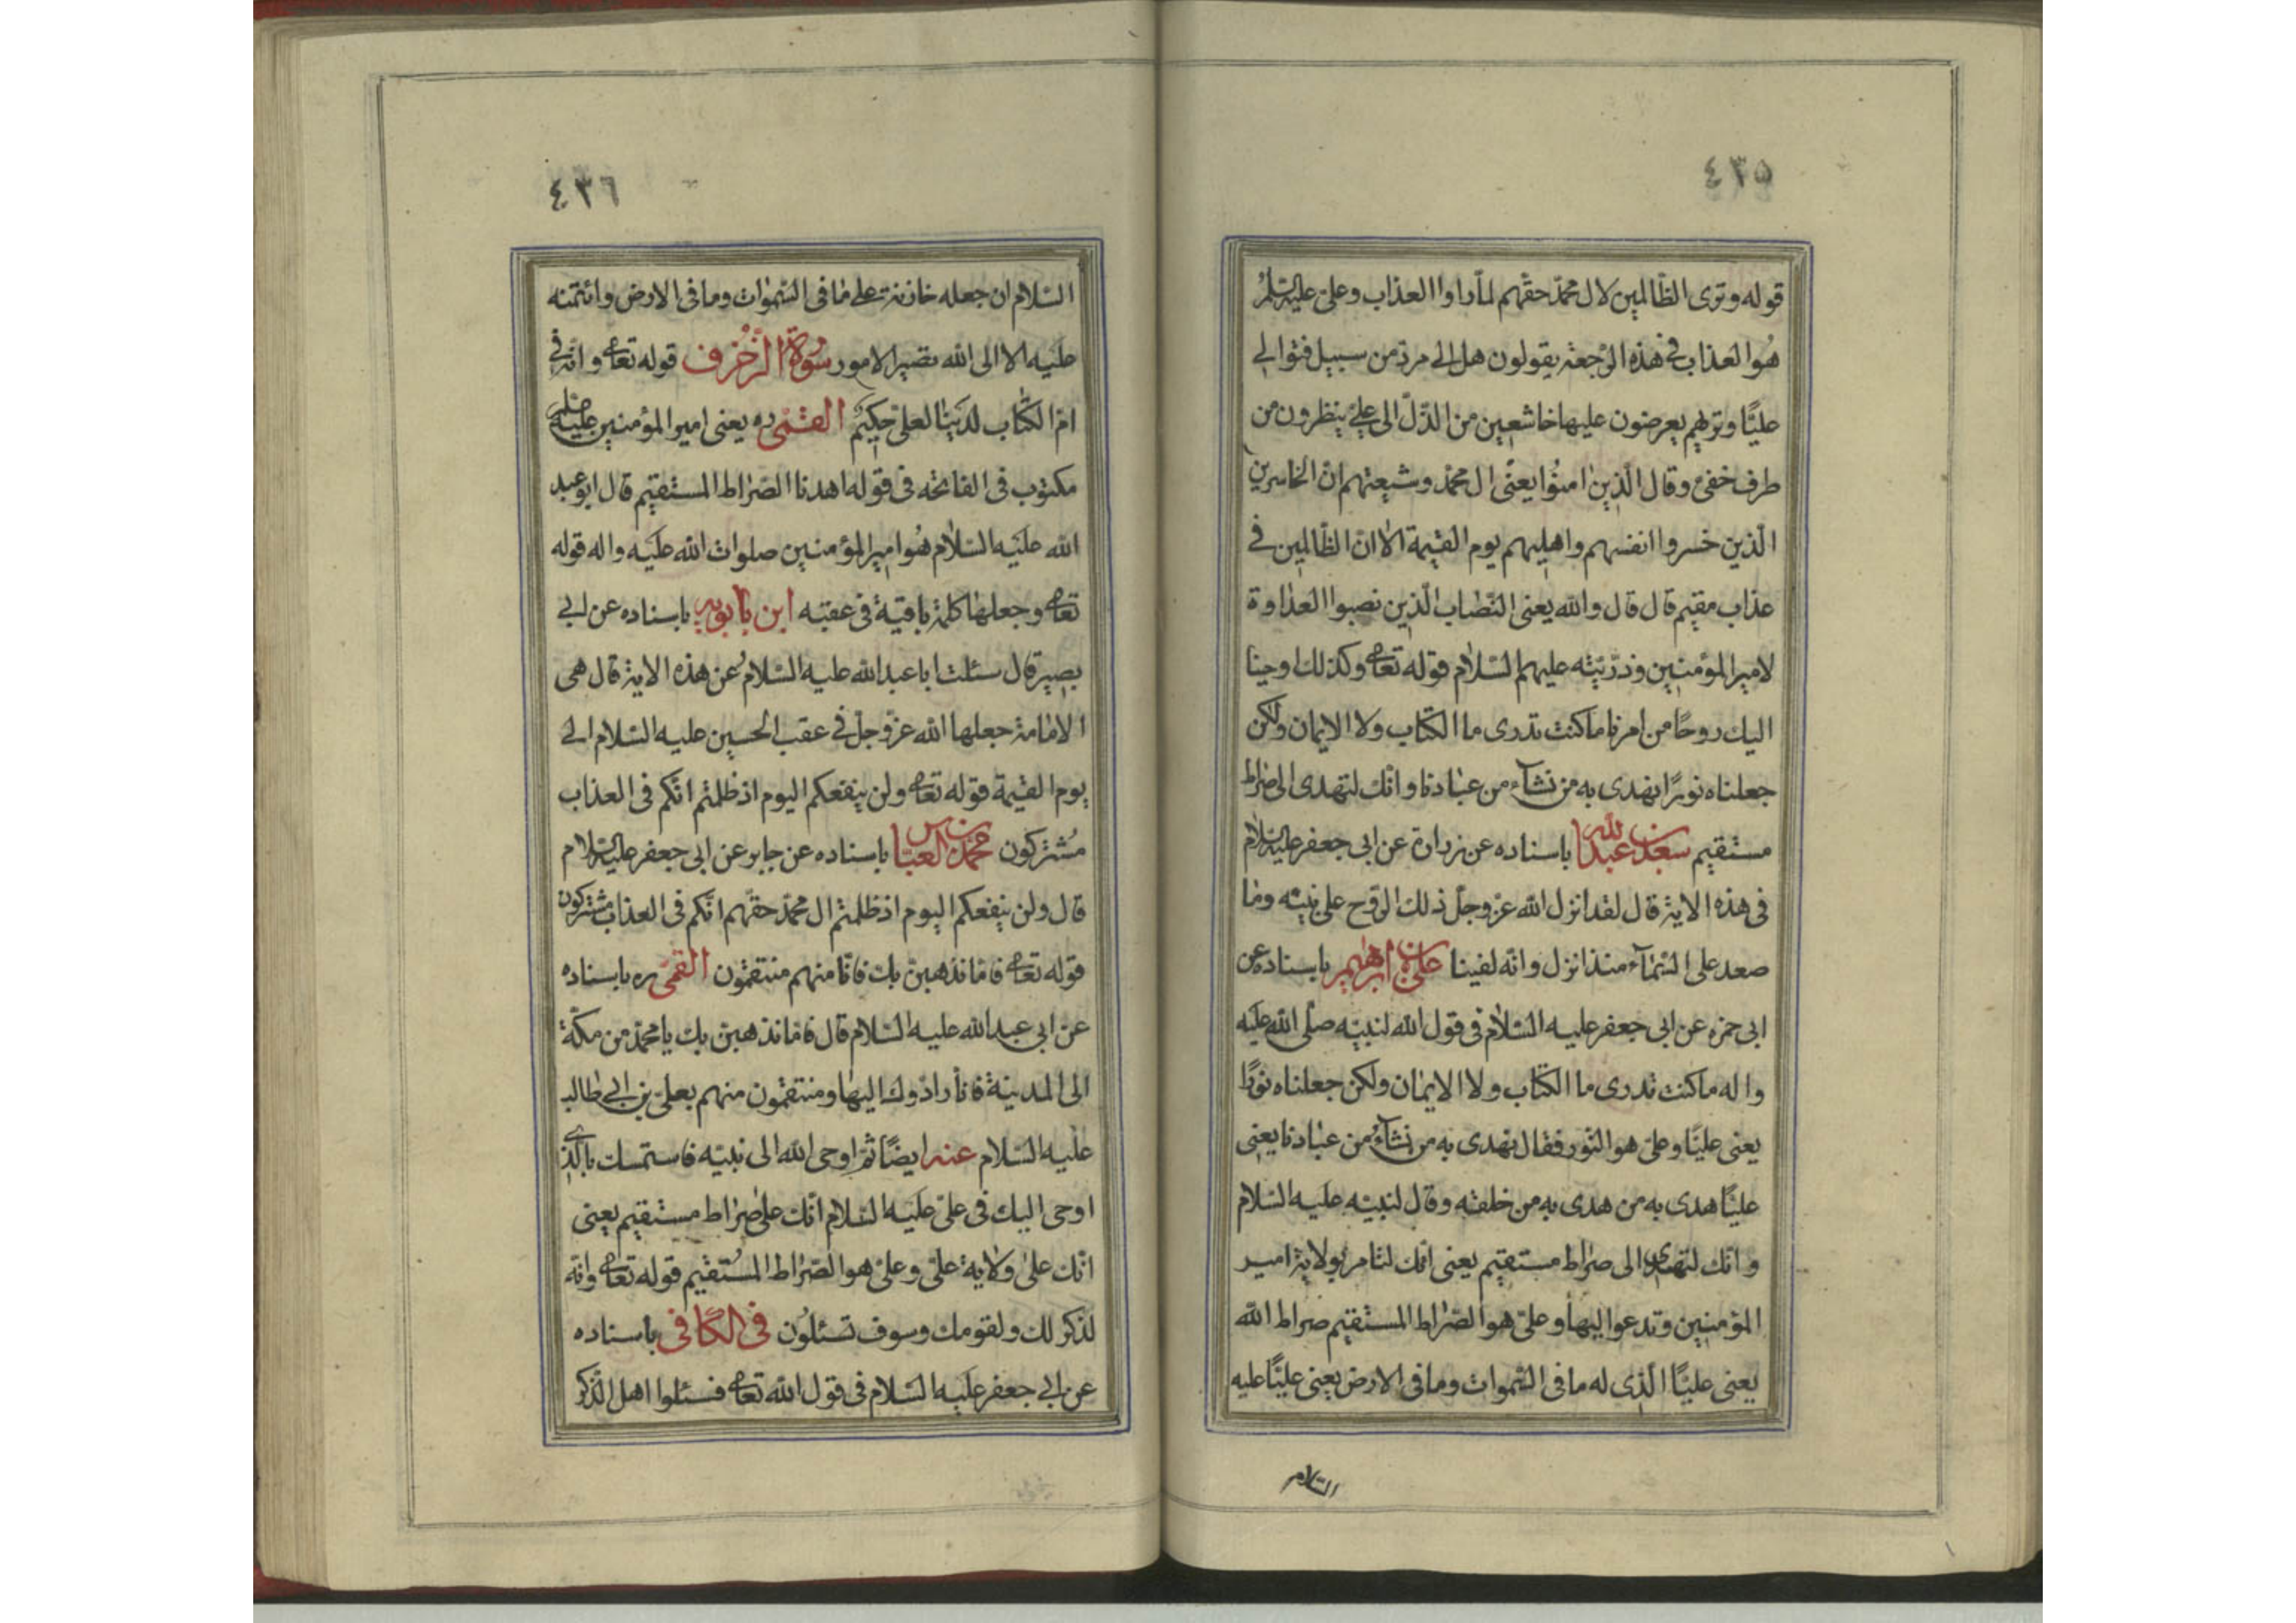 ٤٣٥
قوله وترى الظّالمين لال محمّد حقّهم لمّا راوا العذاب وعلىّ عليه السّلم
هُوا لعذاب فى هذه الرّجعة يقولون هل الى مردّ من سبيل فنوالى
عليّا وتريهم يعرضون عليها خاشعين من الذّلّ الى علىّ ينظرون من
طرف خفىّ وقال الّذين امنُوا يعنى ال محمّد وشيعتهم انّ الخاسرين
الّذين خسروا انفسهم واهليهم يوم القيٰمة الا انّ الظّالمين فى
عذاب مقيم قال قال والله يعنى النصّاب الّذين نصبوا العداوة
لامير المؤمنين وذرّيّته عليهم السّلام قوله تعالى وكذلك اوحينا
اليك روحًا من امرنا ما كنت تدرى ما الكتاب ولا الايمان ولكن
جعلناه نورًا نهدى به من نشآء من عبادنا وانّك لتهدى الى صراط
مستقيم سعد بن عبد الله باسناده عن زرارة عن ابى جعفر عليه السّلام
فى هذه الاية قال لقد انزل الله عزّ وجلّ ذلك الرّوح على نبيّه وما
صعد على السّمآء منذ انزل وانّه لفينا علىّ بن ابرٰهيم باسناده عن
ابى حمزه عن ابى جعفر عليه السّلام فى قول الله لنبيّه صلّى الله عليه
واله ما كنت تدرى ما الكتاب ولا الايمان ولكن جعلناه نورًا
يعنى عليّا وعلىّ هو النّور فقال نهدى به من نشآء من عبادنا يعنى
عليّا هدى به من هدى به من خلقه وقال لنبيّه عليه السّلام
وانّك لتهدى الى صراط مستقيم يعنى انّك لتامر بولاية امير
المؤمنين وتدعوا اليها وعلىّ هو الصّراط المستقيم صراط الله
يعنى عليّا الّذى له ما فى السّموات وما فى الارض يعنى عليّا عليه
السّلام
٤٣٦
السّلام ان جعله خازنه على ما فى السّموات وما فى الارض وائتمنه
عليه الا الى الله تصير الامور سُورة الزّخرف قوله تعالى وانّه فى
امّ الكتاب لدينا لعلىّ حكيم القمّى ره يعنى امير المؤمنين عليه
مكتوب فى الفاتحه فى قوله اهدنا الصّراط المستقيم قال ابو عبد
الله عليه السّلام هُوا مير المؤمنين صلوات الله عليه واله قوله
تعالى وجعلها كلمة باقية فى عقبه ابن بابويه باسناده عن ابى
بصير قال سئلت ابا عبد الله عليه السّلام عن هذه الاية قال هى
الامامة جعلها الله عزّ وجلّ فى عقب الحسين عليه السّلام الى
يوم القيٰمة قوله تعالى ولن ينفعكم اليوم اذ ظلمتم انّكم فى العذاب
مُشتركون محمّد بن العبّاس باسناده عن جابر عن ابى جعفر عليه السّلام
قال ولن ينفعكم اليوم اذ ظلمتم ال محمّد حقّهم انّكم فى العذاب مشتركون
قوله تعالى فامّا نذهبنّ بك فانّا منهم منتقمون القمّى ره باسناده
عن ابى عبد الله عليه السّلام قال فامّا نذهبنّ بك يا محمّد من مكّة
الى المدينة فانّا رادّوك اليها ومنتقمون منهم بعلىّ بن ابى طالب
عليه السّلام عنه ايضًا ثمّ اوحى الله الى نبيّه فاستمسك بالّذى
اوحى اليك فى علىّ عليه السّلام انّك على صراط مستقيم يعنى
انّك على ولاية علىّ وعلىّ هو الصّراط المُستقيم قوله تعالى وانّه
لذكر لك ولقومك وسوف تسئلون فى الكافى باسناده
عن ابى جعفر عليه السّلام فى قول الله تعالى فسئلوا اهل الذّكر